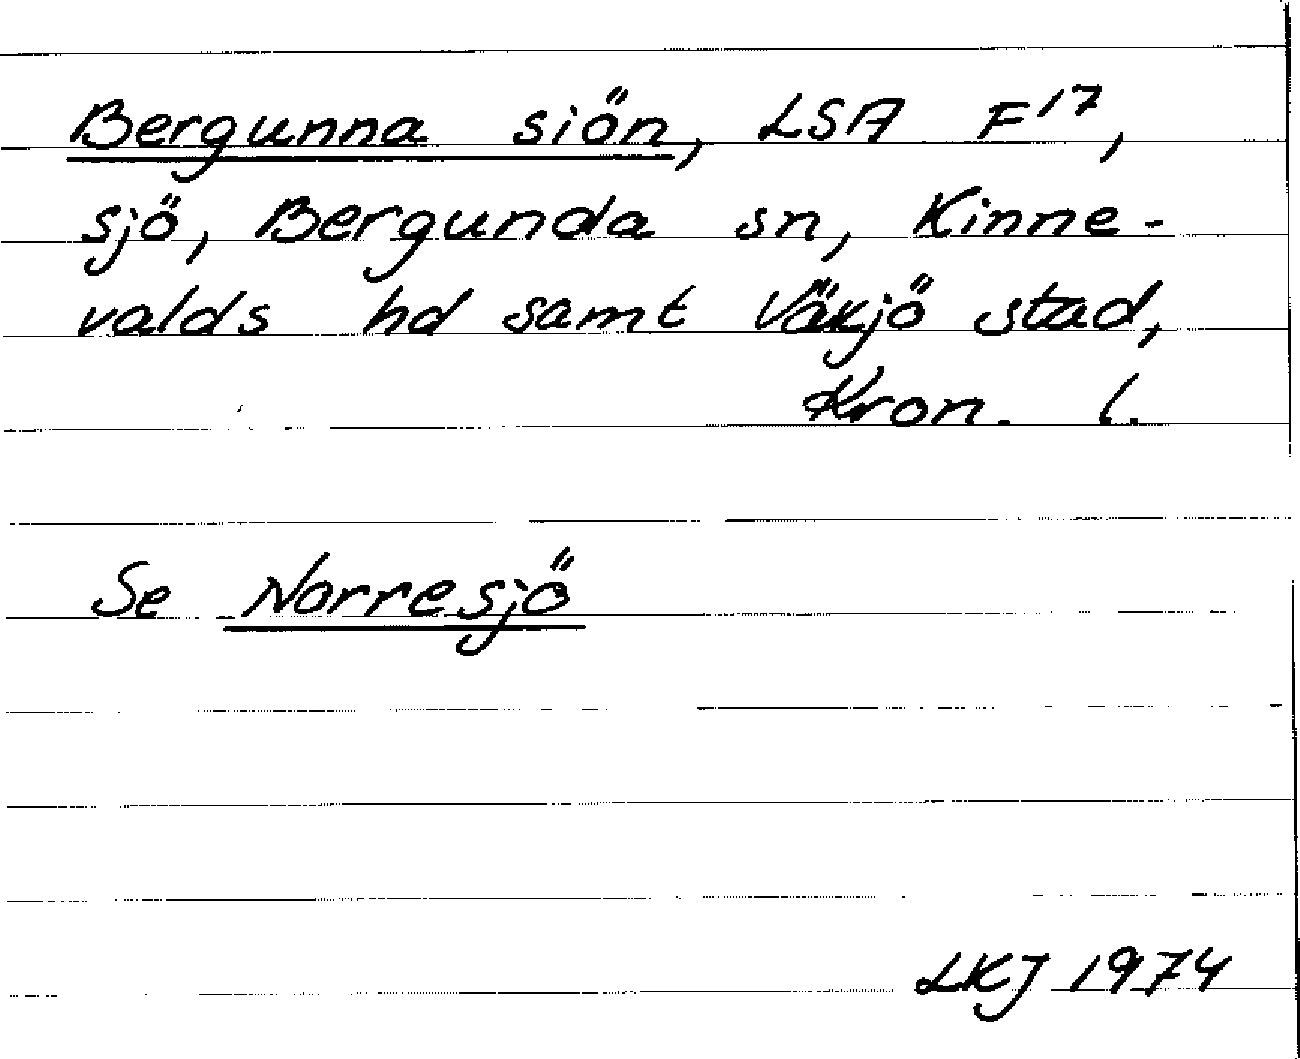 Bergunna siön, LSA F¹⁷,
sjö, Bergunda sn, Kinne-
valds hd samt Växjö stad,
Kron. l.
Se Norresjö
LKJ 1974